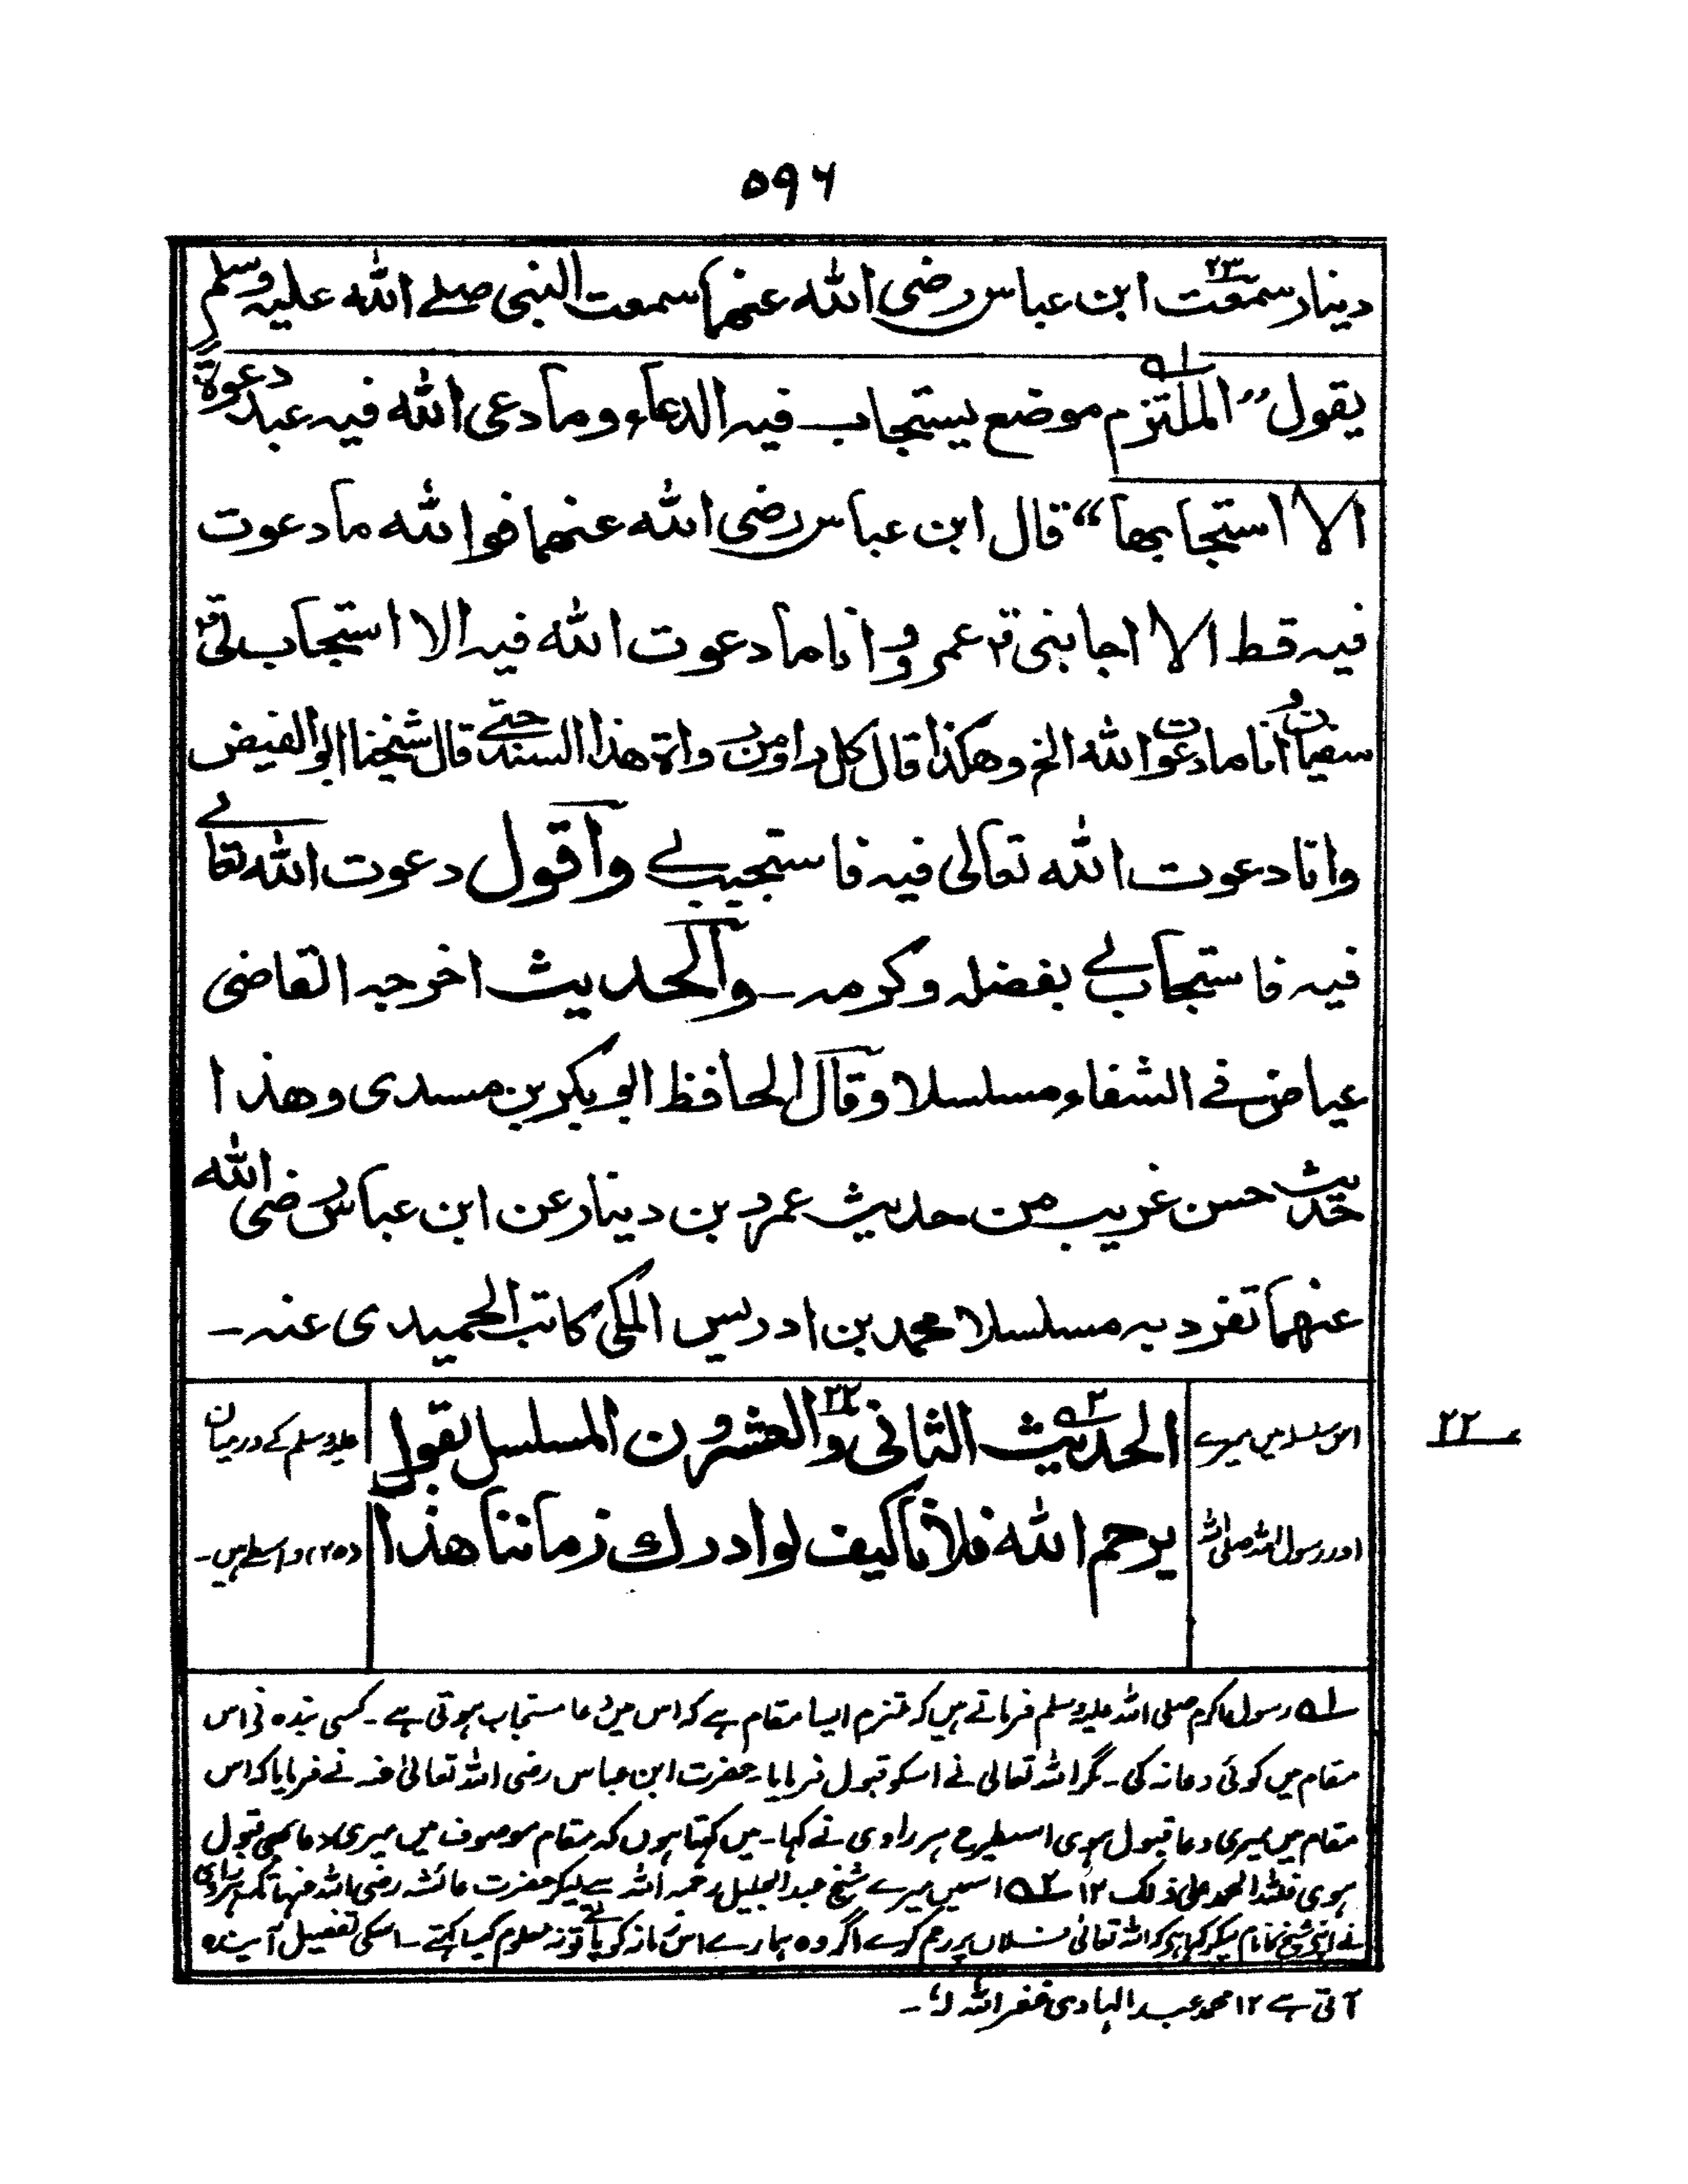 ۵۹۶
دینار سمعت۲۳ ابن عباس رضی اللہ عنھما سمعت النبی صلے اللہ علیہ وسلم
یقول ”الملتزم۱ موضع یستجاب فیہ الدعاء وما دعی اللہ فیہ عبد دعوۃ
الا استجابھا“ قال ابن عباس رضی اللہ عنھما فواللہ ما دعوت
فیہ قط الا اجابنی قۃ عمرو وانا ما دعوت اللہ فیہ الا استجاب لی قۃ
سفیان وانا ما دعوت اللہ الخ وھکذا قال کل راو من رواۃ ھذا السند حتے قال شیخنا ابو الفیض
وانا دعوت اللہ تعالی فیہ فاستجیب لے واقول دعوت اللہ تعالے
فیہ فاستجاب لے بفضلہ وکرمہ ـ والحدیث اخرجہ القاضی
عیاض فے الشفاء مسلسلا وقال الحافظ ابو بکر بن مسدی وھذا
حدیث حسن غریب من حدیث عمرو بن دینار عن ابن عباس رضی اللہ
عنھما تفرد بہ مسلسلا محمد بن ادریس المکی کاتب الحمیدی عنہ ـ
۲۲
الحدیث۲ الثانی والعشرون۲۲ المسلسل بقول
یرحم اللہ فلانا کیف لو ادرک زماننا ھذا
اس سلسلہ میں میرے
اور رسول اللہ صلی اللہ
علیہ وسلم کے درمیان
(۲۵) واسطے ہیں ـ
۱؎ رسول اکرم صلی اللہ علیہ وسلم فرماتے ہیں کہ ملتزم ایسا مقام ہے کہ اس میں دعا مستجاب ہوتی ہے ـ کسی بندہ نی اس
مقام میں کوئی دعا نہ کی ـ مگر اللہ تعالی نے اسکو قبول فرمایا ـ حضرت ابن عباس رضی اللہ تعالیٰ عنہ نے فرمایا کہ اس
مقام میں میری دعا قبول ہوی اسیطرح ہر راوی نے کہا ـ میں کہتا ہوں کہ مقام موصوف میں میری دعا بھی قبول
ہوی فللہ الحمد علی ذلک ۱۲ ۲؎ اسمیں میرے شیخ عبد الجلیل رحمہ اللہ سے لیکر حضرت عائشہ رضی اللہ عنہا تک ہر راوی
نے اپنے شیخ کا نام لیکر کہا ہیکہ اللہ تعالیٰ فلاں پر رحم کرے اگر وہ ہمارے اس زمانہ کو پاتے تو نہ معلوم کیا کہتے ـ اسکی تفصیل آیندہ
آتی ہے ۱۲ محمد عبد الہادی غفر اللہ لہٗ ـ